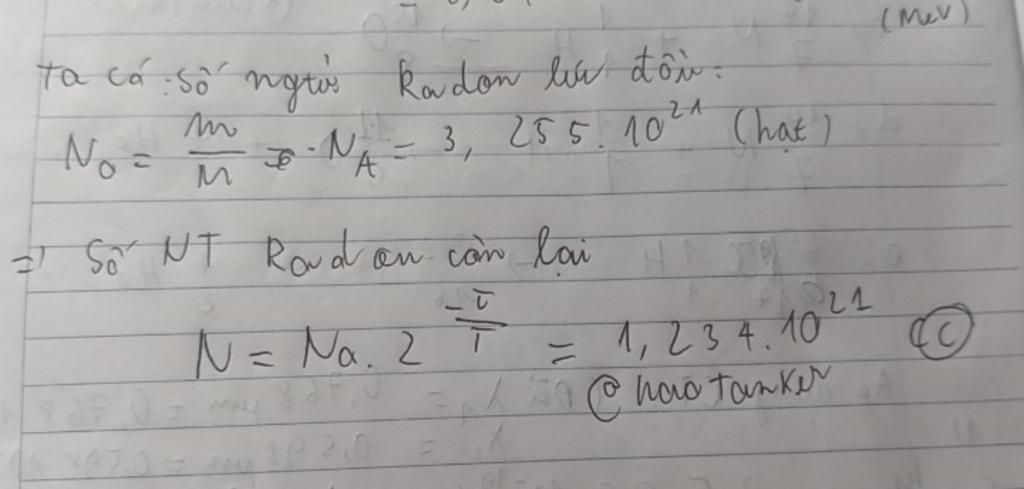 (MeV)
Ta có: Số ngtử Radon lúc đầu:
N₀ = m/M · N_A = 3,255.10²¹ (hạt)
=> Số NT Radon còn lại
N = Na. 2^(-t/T) = 1,234.10²¹ (C)
@haotanker